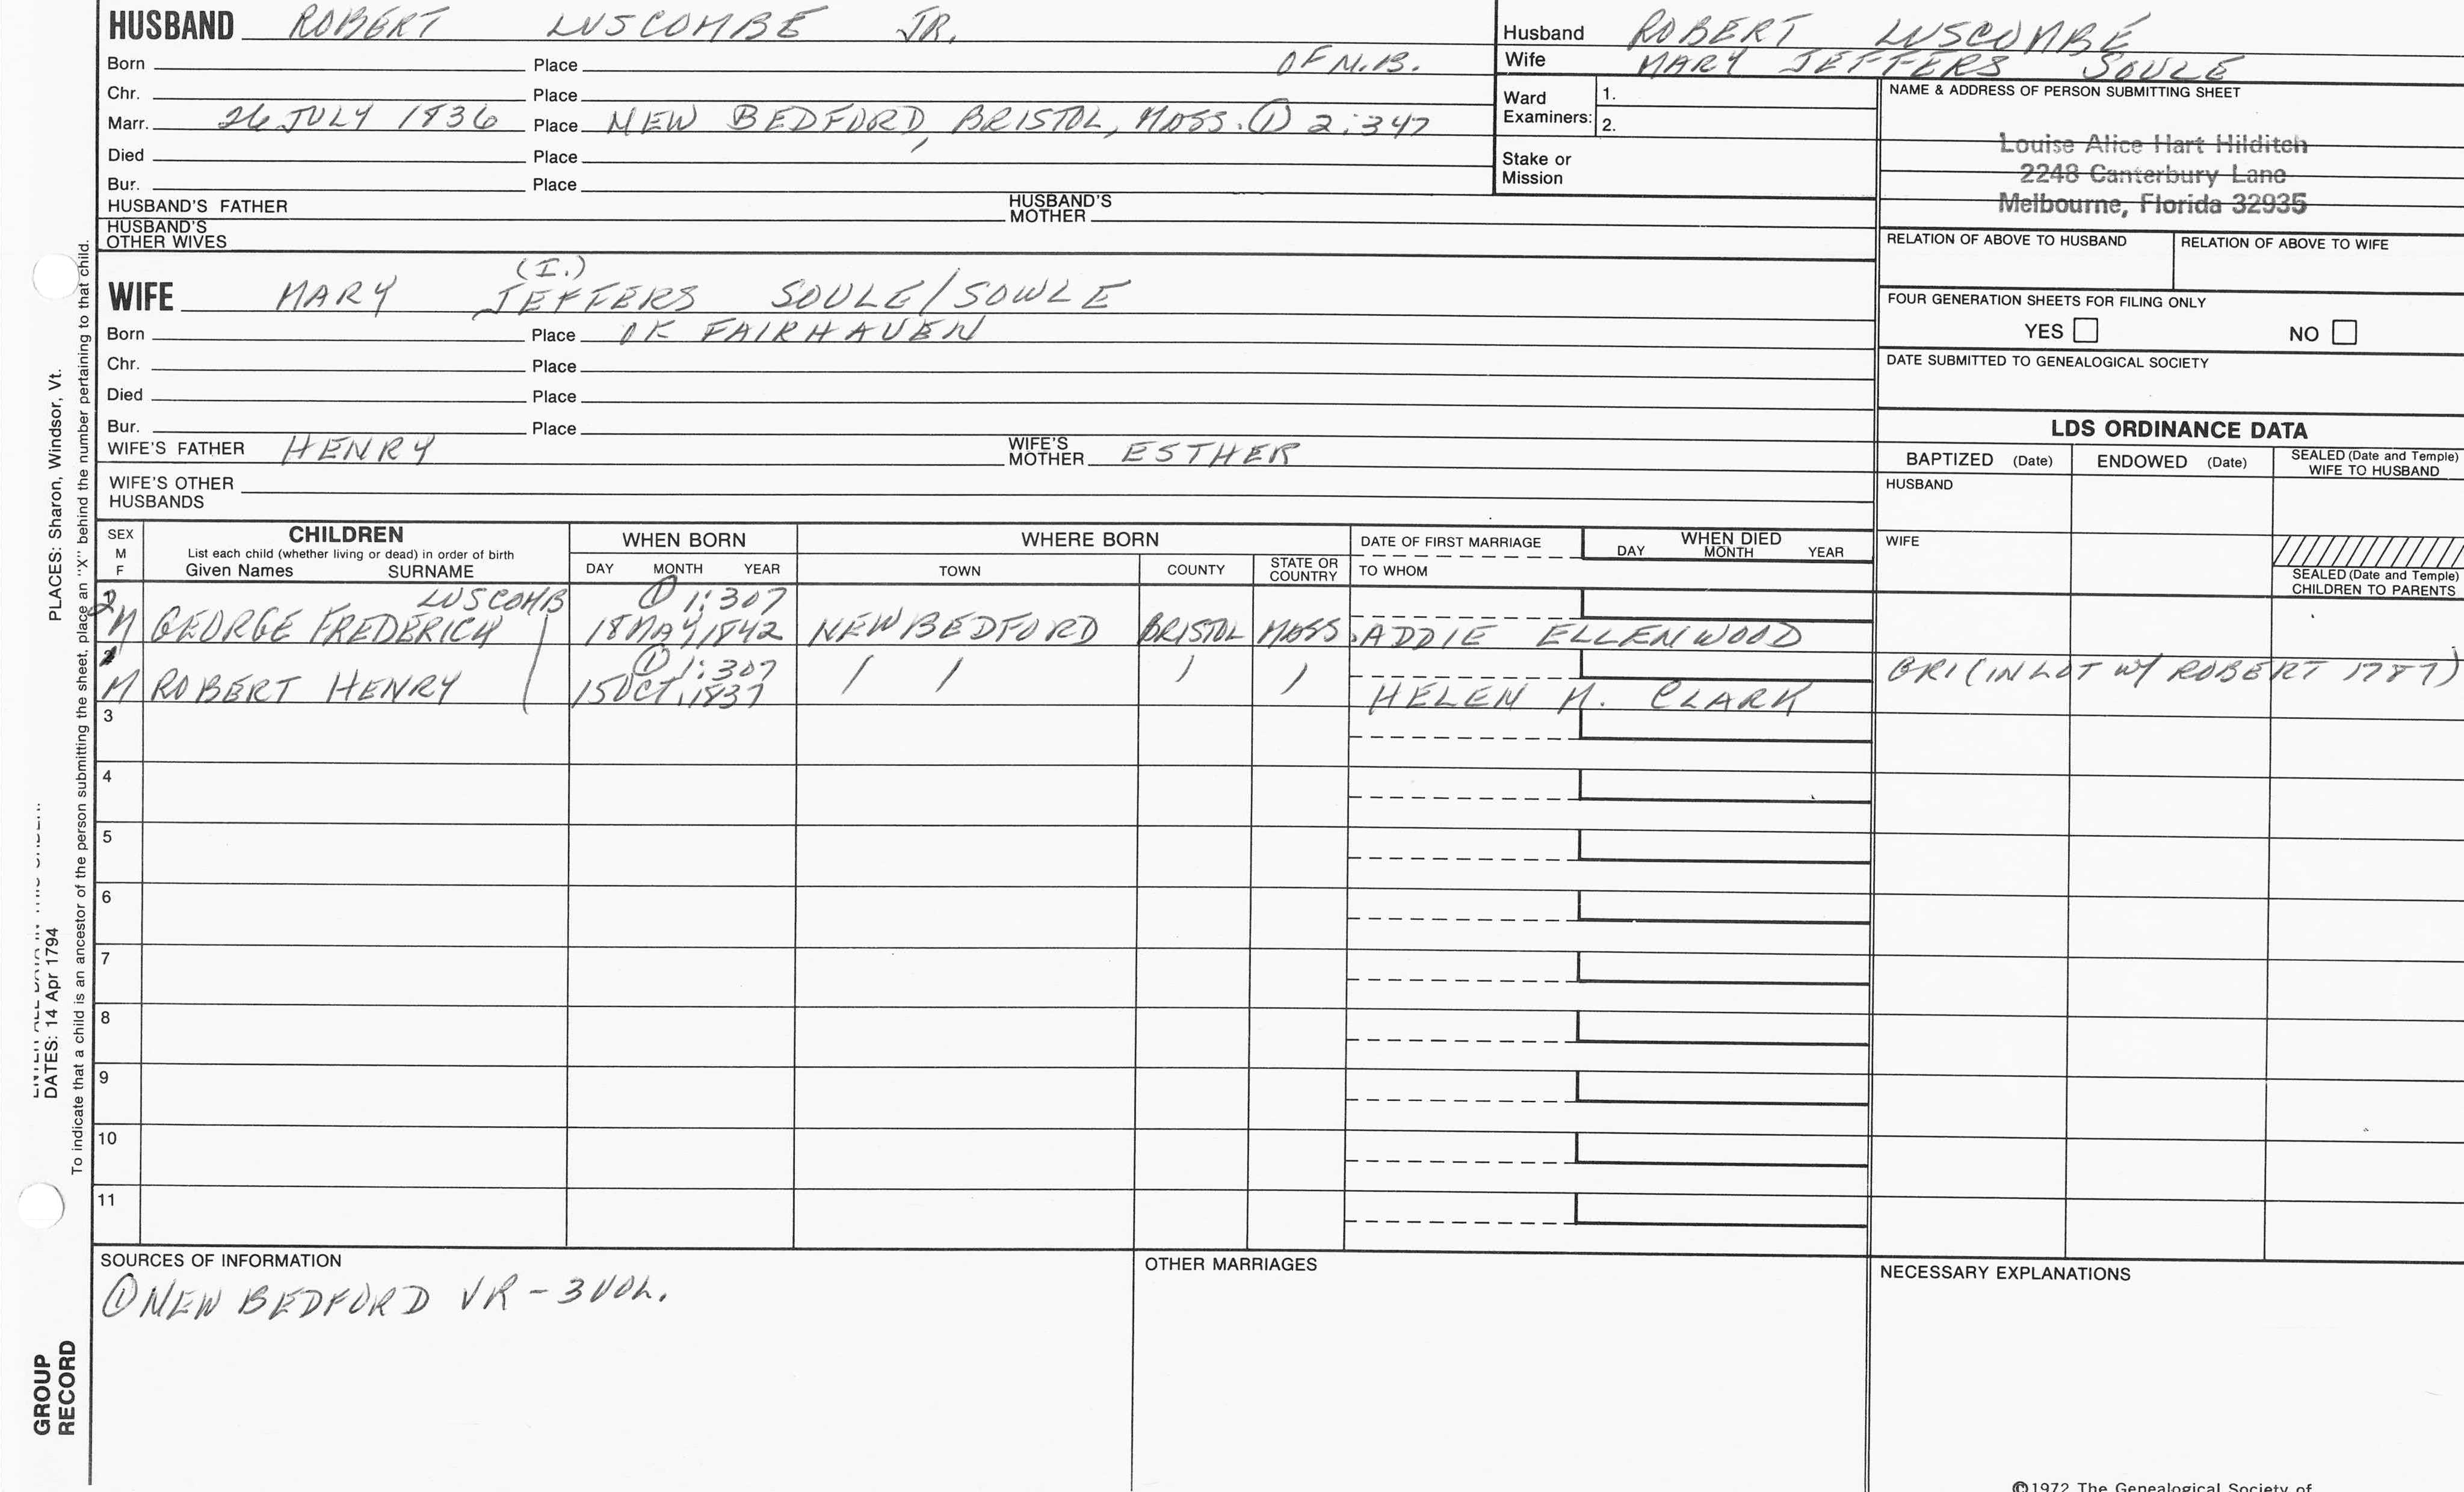 HUSBAND ROBERT LUSCOMBE JR.
Born Place OF N.B.
Chr. Place
Marr. 26 JULY 1836 Place NEW BEDFORD, BRISTOL, MASS. ① 2:347
Died Place
Bur. Place
HUSBAND'S FATHER HUSBAND'S MOTHER
HUSBAND'S OTHER WIVES
Husband ROBERT LUSCOMBE
Wife MARY JEFFERS SOULE
Ward Examiners: 1.
2.
Stake or Mission
NAME & ADDRESS OF PERSON SUBMITTING SHEET
Louise Alice Hart Hilditch
2248 Canterbury Lane
Melbourne, Florida 32935
RELATION OF ABOVE TO HUSBAND RELATION OF ABOVE TO WIFE
FOUR GENERATION SHEETS FOR FILING ONLY
YES NO
DATE SUBMITTED TO GENEALOGICAL SOCIETY
(I.)
WIFE MARY JEFFERS SOULE/SOWLE
Born Place OF FAIRHAVEN
Chr. Place
Died Place
Bur. Place
WIFE'S FATHER HENRY WIFE'S MOTHER ESTHER
WIFE'S OTHER HUSBANDS
LDS ORDINANCE DATA
BAPTIZED (Date) ENDOWED (Date) SEALED (Date and Temple) WIFE TO HUSBAND
HUSBAND
WIFE
SEALED (Date and Temple) CHILDREN TO PARENTS
SEX M F
CHILDREN
List each child (whether living or dead) in order of birth
Given Names SURNAME
WHEN BORN
DAY MONTH YEAR
WHERE BORN
TOWN COUNTY STATE OR COUNTRY
DATE OF FIRST MARRIAGE
TO WHOM
WHEN DIED
DAY MONTH YEAR
2 LUSCOMB ① 1:307
M GEORGE FREDERICK 18 MAY 1842 NEW BEDFORD BRISTOL MASS. ADDIE ELLENWOOD
① 1:307
M ROBERT HENRY 15 OCT. 1837 / / / / HELEN M. CLARK BRI (IN LOT W/ ROBERT 1787)
3
4
5
6
7
8
9
10
11
SOURCES OF INFORMATION
① NEW BEDFORD VR - 3 VOL.
OTHER MARRIAGES
NECESSARY EXPLANATIONS
©1972 The Genealogical Society of
PLACES: Sharon, Windsor, Vt.
DATES: 14 Apr 1794
To indicate that a child is an ancestor of the person submitting the sheet, place an "X" behind the number pertaining to that child.
GROUP
RECORD